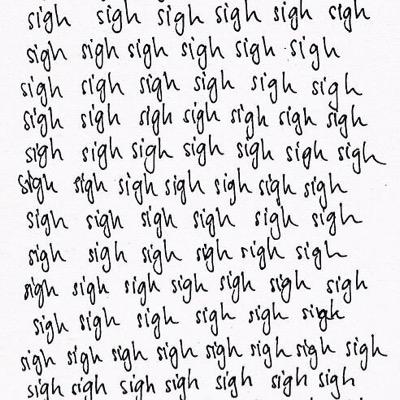 sigh sigh sigh sigh sigh sigh
sigh sigh sigh sigh sigh sigh
sigh sigh sigh sigh sigh sigh
sigh sigh sigh sigh sigh sigh sigh
sigh sigh sigh sigh sigh sigh sigh
sigh sigh sigh sigh sigh sigh sigh
sigh sigh sigh sigh sigh sigh
sigh sigh sigh sigh sigh sigh
sigh sigh sigh sigh sigh sigh sigh
sigh sigh sigh sigh sigh sigh
sigh sigh sigh sigh sigh sigh sigh sigh
sigh sigh sigh sigh sigh sigh sigh